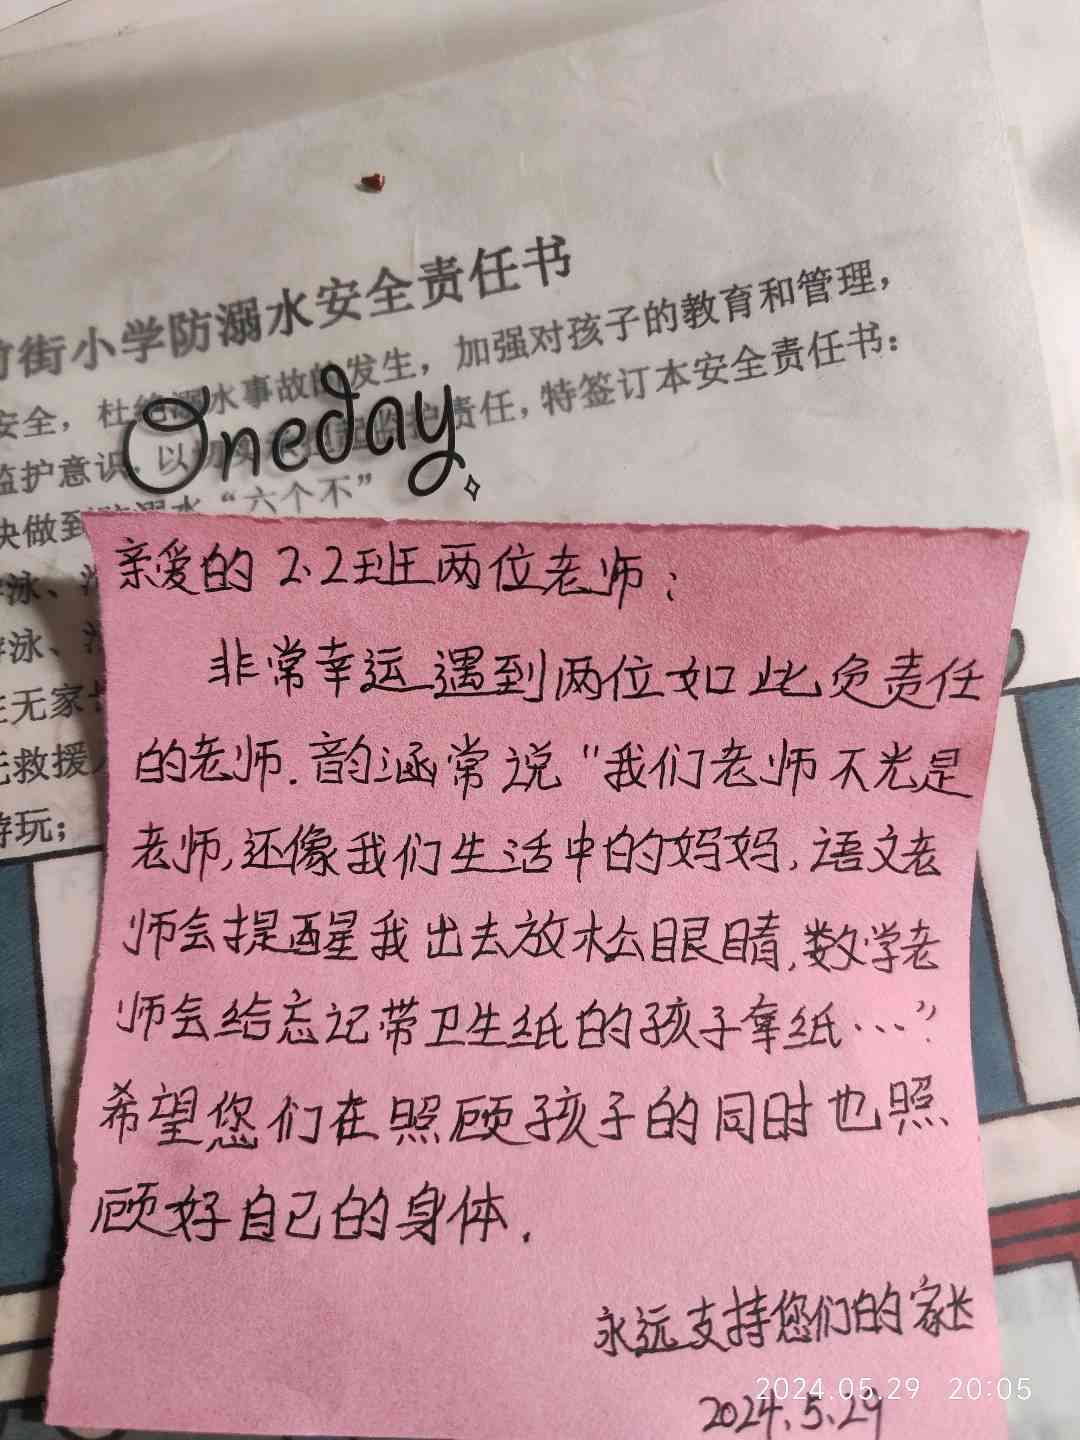 街小学防溺水安全责任书
安全，杜绝溺水事故的发生，加强对孩子的教育和管理，
监护意识，以切实 监护责任，特签订本安全责任书：
做到防溺水“六个不”
Oneday
游泳、
游泳、
无家长
救援
游玩；
亲爱的2.2班两位老师：
非常幸运遇到两位如此负责任
的老师.韵涵常说“我们老师不光是
老师,还像我们生活中的妈妈,语文老
师会提醒我出去放松眼睛,数学老
师会给忘记带卫生纸的孩子拿纸…”
希望您们在照顾孩子的同时也照
顾好自己的身体.
永远支持您们的家长
2024.5.29
2024.05.29 20:05